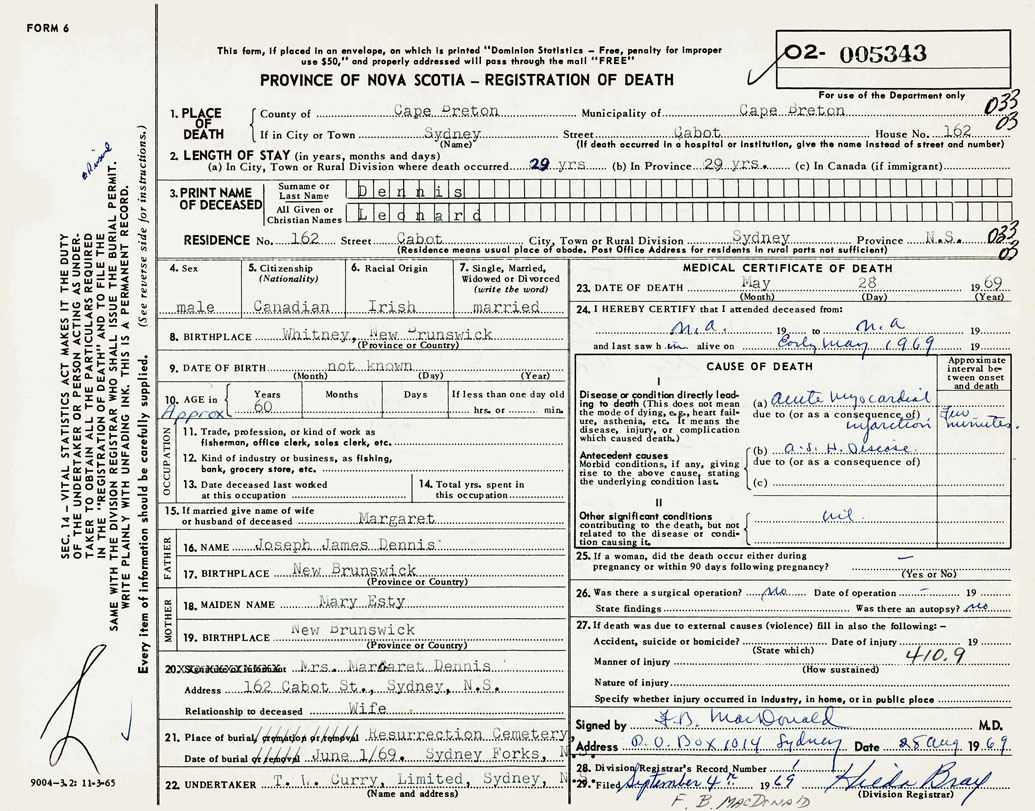 FORM 6
This form, if placed in an envelope, on which is printed "Dominion Statistics – Free, penalty for improper
use $50," and properly addressed will pass through the mail "FREE"
PROVINCE OF NOVA SCOTIA – REGISTRATION OF DEATH
O2- 005343
For use of the Department only
033
03
1. PLACE OF DEATH
County of Cape Breton Municipality of Cape Breton
If in City or Town Sydney Street Cabot House No. 162
(Name) (If death occurred in a hospital or institution, give the name instead of street and number)
2. LENGTH OF STAY (in years, months and days)
(a) In City, Town or Rural Division where death occurred 29 yrs (b) In Province 29 yrs. (c) In Canada (if immigrant)
3. PRINT NAME OF DECEASED
Surname or Last Name Dennis
All Given or Christian Names Leonard
RESIDENCE No. 162 Street Cabot City, Town or Rural Division Sydney Province N.S.
(Residence means usual place of abode. Post Office Address for residents in rural parts not sufficient)
033
03
4. Sex
male
5. Citizenship
(Nationality)
Canadian
6. Racial Origin
Irish
7. Single, Married,
Widowed or Divorced
(write the word)
married
8. BIRTHPLACE Whitney, New Brunswick
(Province or Country)
9. DATE OF BIRTH not known
(Month) (Day) (Year)
10. AGE in Years Months Days If less than one day old
Approx 60 hrs. or min.
OCCUPATION
11. Trade, profession, or kind of work as
fisherman, office clerk, sales clerk, etc.
12. Kind of industry or business, as fishing,
bank, grocery store, etc.
13. Date deceased last worked
at this occupation
14. Total yrs. spent in
this occupation
15. If married give name of wife
or husband of deceased Margaret
FATHER
16. NAME Joseph James Dennis
17. BIRTHPLACE New Brunswick
(Province or Country)
MOTHER
18. MAIDEN NAME Mary Esty
19. BIRTHPLACE New Brunswick
(Province or Country)
20. Signature of informant Mrs. Margaret Dennis
Address 162 Cabot St., Sydney, N.S.
Relationship to deceased Wife
21. Place of burial, cremation or removal Resurrection Cemetery,
Date of burial or removal June 1/69. Sydney Forks, N.S.
22. UNDERTAKER T. W. Curry, Limited, Sydney, N.S.
(Name and address)
MEDICAL CERTIFICATE OF DEATH
23. DATE OF DEATH May 28 1969
(Month) (Day) (Year)
24. I HEREBY CERTIFY that I attended deceased from:
n.a. 19 to n.a 19
and last saw him alive on Early May 1969 19
CAUSE OF DEATH
Approximate
interval be-
tween onset
and death
I
Disease or condition directly lead-
ing to death (This does not mean
the mode of dying, e.g., heart fail-
ure, asthenia, etc. It means the
disease, injury, or complication
which caused death.)
(a) acute myocardial
due to (or as a consequence of)
infarction few minutes.
Antecedent causes
Morbid conditions, if any, giving
rise to the above cause, stating
the underlying condition last.
(b) a.s. H. Disease
due to (or as a consequence of)
(c)
II
Other significant conditions
contributing to the death, but not
related to the disease or condi-
tion causing it.
nil
25. If a woman, did the death occur either during
pregnancy or within 90 days following pregnancy? –
(Yes or No)
26. Was there a surgical operation? no Date of operation – 19
State findings Was there an autopsy? no
27. If death was due to external causes (violence) fill in also the following: –
Accident, suicide or homicide? Date of injury 19
(State which)
Manner of injury 410.9
(How sustained)
Nature of injury
Specify whether injury occurred in Industry, in home, or in public place
Signed by F.B. MacDonald M.D.
Address P.O. Box 1014 Sydney Date 28 Aug. 1969
28. Division Registrar's Record Number 1
29. Filed September 4th 1969 Hilda Bray
(Division Registrar)
F. B. MACDONALD
SEC. 14 – VITAL STATISTICS ACT MAKES IT THE DUTY
OF THE UNDERTAKER OR PERSON ACTING AS UNDER-
TAKER TO OBTAIN ALL THE PARTICULARS REQUIRED
IN THE "REGISTRATION OF DEATH" AND TO FILE THE
SAME WITH THE DIVISION REGISTRAR WHO SHALL ISSUE THE BURIAL PERMIT.
WRITE PLAINLY WITH UNFADING INK. THIS IS A PERMANENT RECORD.
Every item of information should be carefully supplied. (See reverse side for instructions.)
9004-3.2: 11-3-65